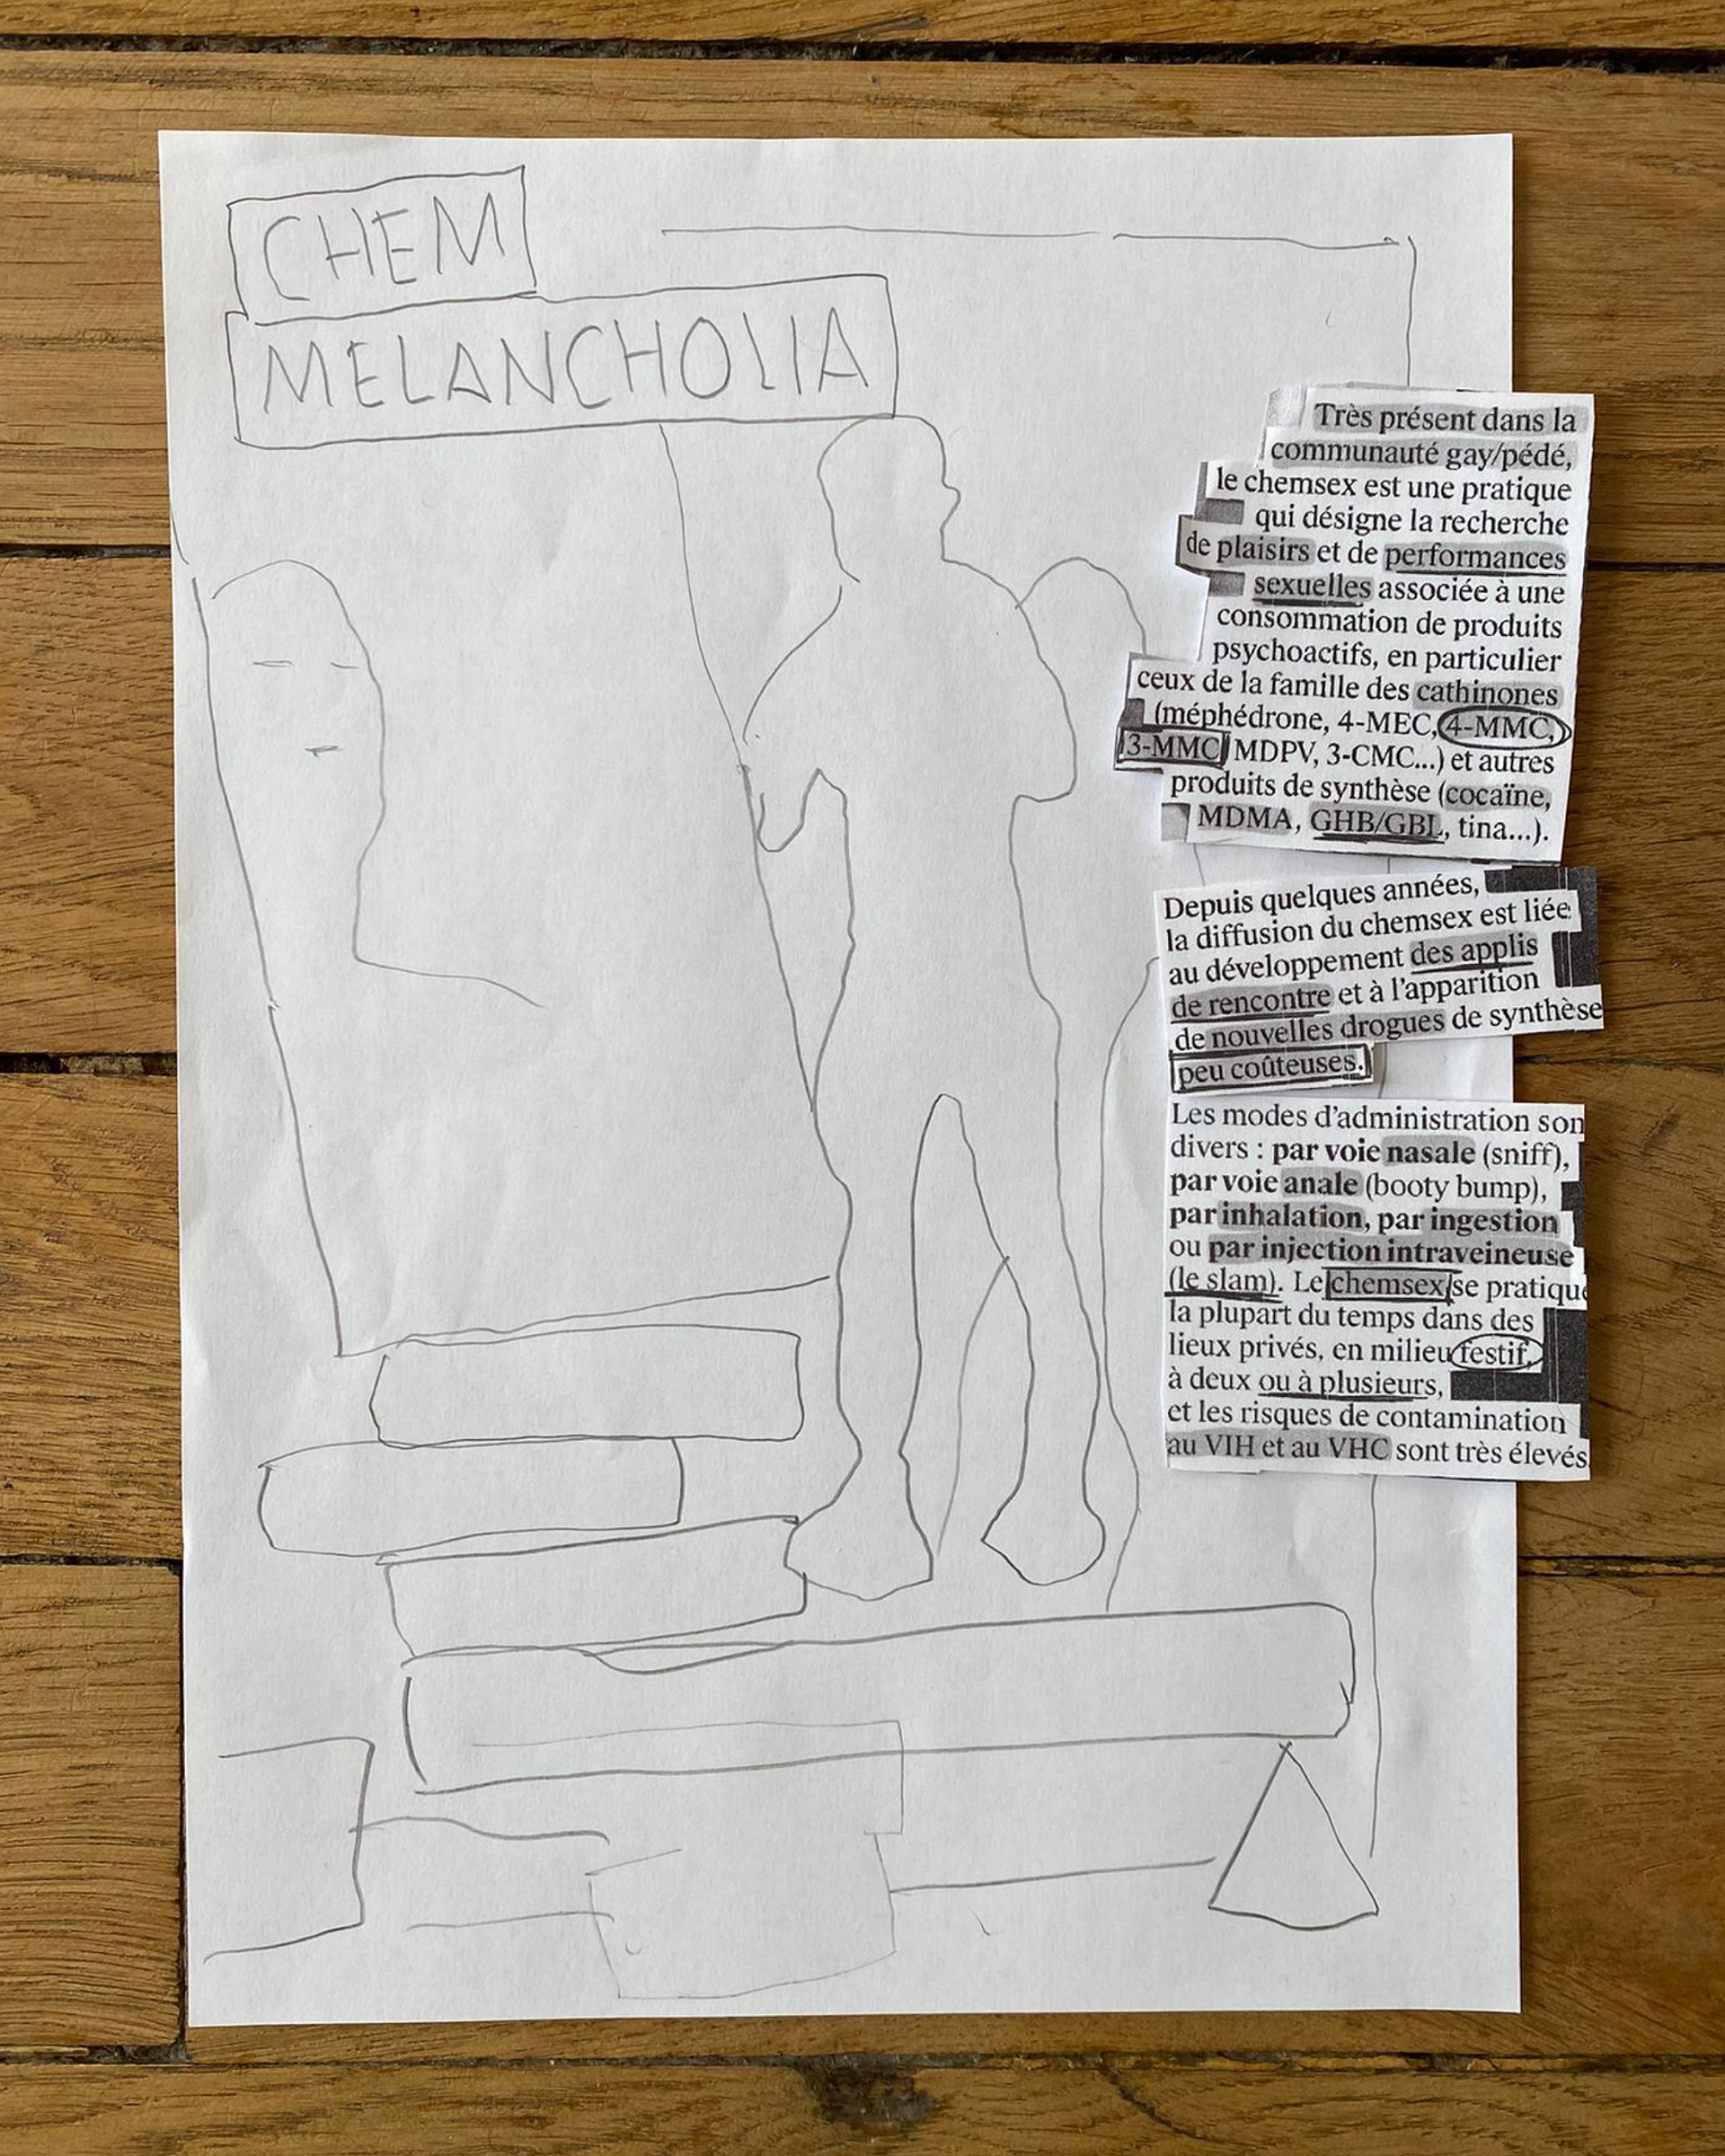 CHEM
MELANCHOLIA
Très présent dans la
communauté gay/pédé,
le chemsex est une pratique
qui désigne la recherche
de plaisirs et de performances
sexuelles associée à une
consommation de produits
psychoactifs, en particulier
ceux de la famille des cathinones
(méphédrone, 4-MEC, 4-MMC,
3-MMC, MDPV, 3-CMC...) et autres
produits de synthèse (cocaïne,
MDMA, GHB/GBL, tina...).
Depuis quelques années,
la diffusion du chemsex est liée
au développement des applis
de rencontre et à l'apparition
de nouvelles drogues de synthèse
peu coûteuses.
Les modes d'administration son
divers : par voie nasale (sniff),
par voie anale (booty bump),
par inhalation, par ingestion
ou par injection intraveineuse
(le slam). Le chemsex se pratique
la plupart du temps dans des
lieux privés, en milieu festif,
à deux ou à plusieurs,
et les risques de contamination
au VIH et au VHC sont très élevés